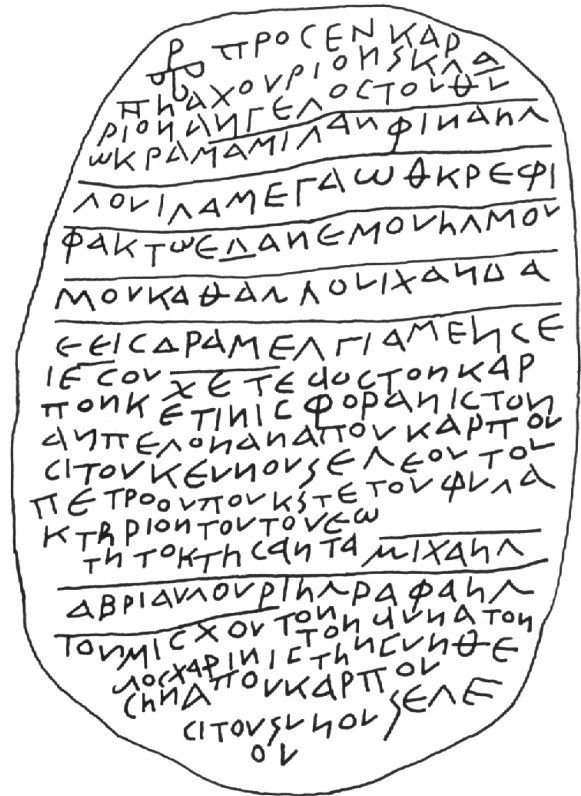 ⳨ ΠΡΟCΕΝΚΑΡ
ΠΗΑΧΟΥΡΙΟΗSΚΛΔ
ΡΙΟΗΑΗΓΕΛΟCΤΟΥΘΥ
ωΚΡΑΜΑΜΙΛΑΗΦΙΗΑΗΛ
ΛΟΥΙΛΑΜΕΓΑωΘΚΡΕΦΙ
ΦΑΚΤωΕΛΑΗΕΜΟΥΗΛΜΟΥ
ΜΟΥΚΑΘΑΛΛΟΥΙΧΑΗΔΑ
ΕΕΙCΔΡΑΜΕΛΓΙΑΜΕΗCΕ
ΙΕCΟΥ ΧΕΤΕΔΟCΤΟΗΚΑΡ
ΠΟΗΚΕΤΙΗΙCΦΟΡΑΗΙCΤΟΗ
ΑΗΠΕΛΟΗΑΗΑΠΟΥΚΑΡΠΟΥ
CΙΤΟΥΚΕΥΗΟΥSΕΛΕΟΥΤΟΥ
ΠΕΤΡΟΟΥΠΟΥΚSΤΕΤΟΥΦΥΛΑ
ΚΤΗΡΙΟΗΤΟΥΤΟΥΕω
ΤΗΤΟΚΤΗCΑΗΤΑΜΙΧΑΗΛ
ΑΒΡΙΑΥΛΟΥΡΙΗΛΡΑΦΑΗΛ
ΤΟΥΜΙCΧΟΥΤΟΗ
ΤΟΗΔΥΗΑΤΟΗ
ΛΟCΧΑΡΙΗΙCΤΗΗCΥΗΘΕ
CΗΗΑΠΟΥΚΑΡΠΟΥ
CΙΤΟΥSΥΗΟΥSΕΛΕ
ΟΥ